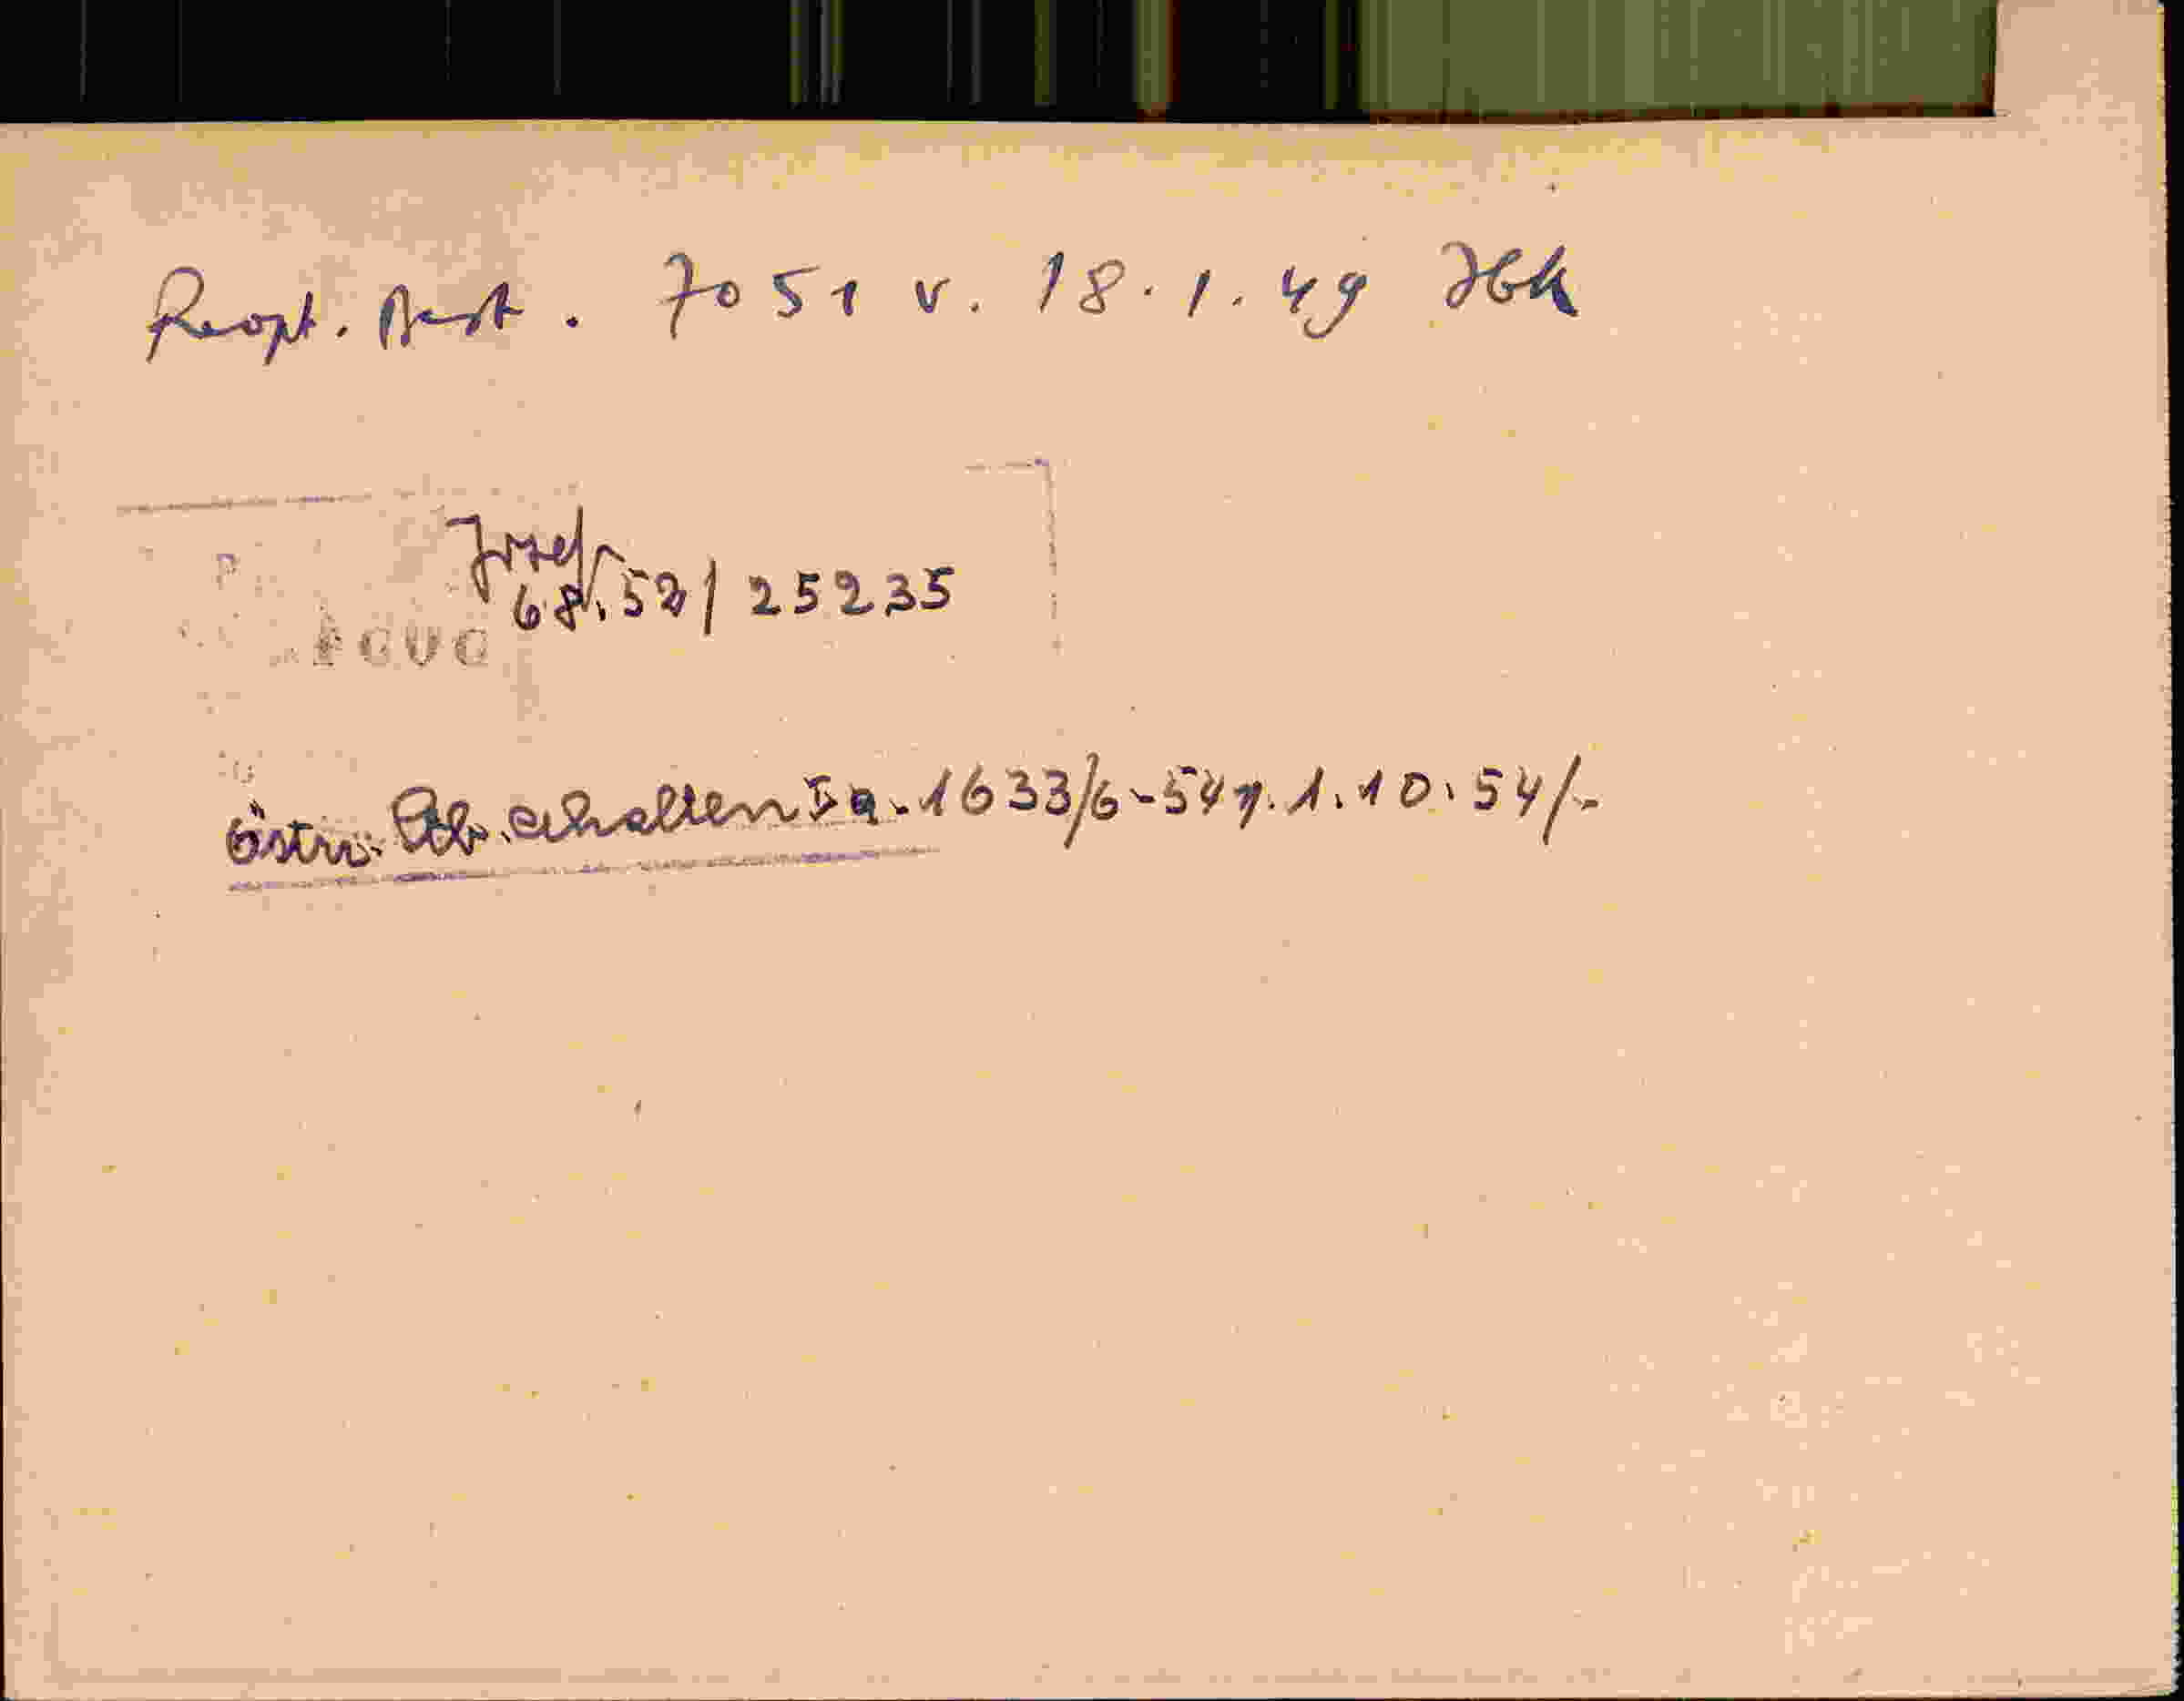 Reopt. Best. 7051 v. 18.1.49
Josef
68.52/25235
östrr. Stb. erhalten Ia-1633/6-54 v. 1.10.54/-